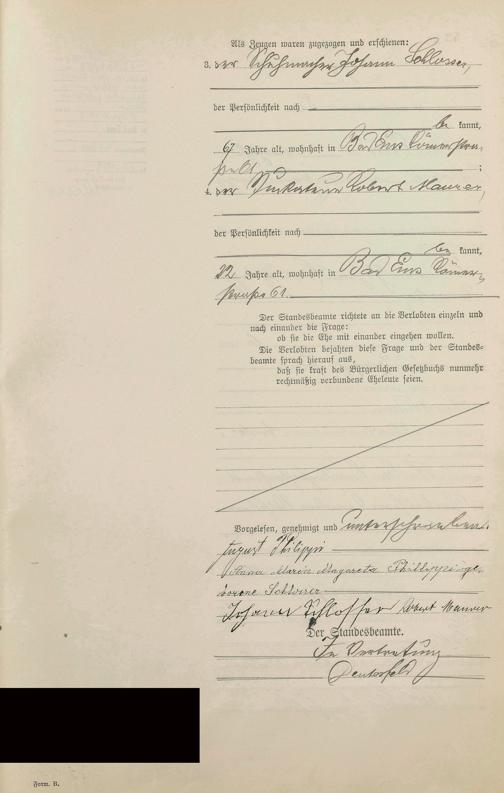 Als Zeugen waren zugezogen und erschienen:
3. der Schuhmacher Johann Schlosser,
der Persönlichkeit nach
be kannt,
67 Jahre alt, wohnhaft in Bad Ems Römerstra-
;
4. der Robert Maurer,
der Persönlichkeit nach
be kannt,
22 Jahre alt, wohnhaft in Bad Ems Römer-
straße 61.
Der Standesbeamte richtete an die Verlobten einzeln und
nach einander die Frage:
ob sie die Ehe mit einander eingehen wollen.
Die Verlobten bejahten diese Frage und der Standes-
beamte sprach hierauf aus,
daß sie kraft des Bürgerlichen Gesetzbuchs nunmehr
rechtmäßig verbundene Eheleute seien.
Vorgelesen, genehmigt und unterschrieben.
August Philippi
Anna Maria Margareta Philippi ge-
borene Schlosser
Johann Schlosser Robert Maurer
Der Standesbeamte.
In Vertretung
Form. B.